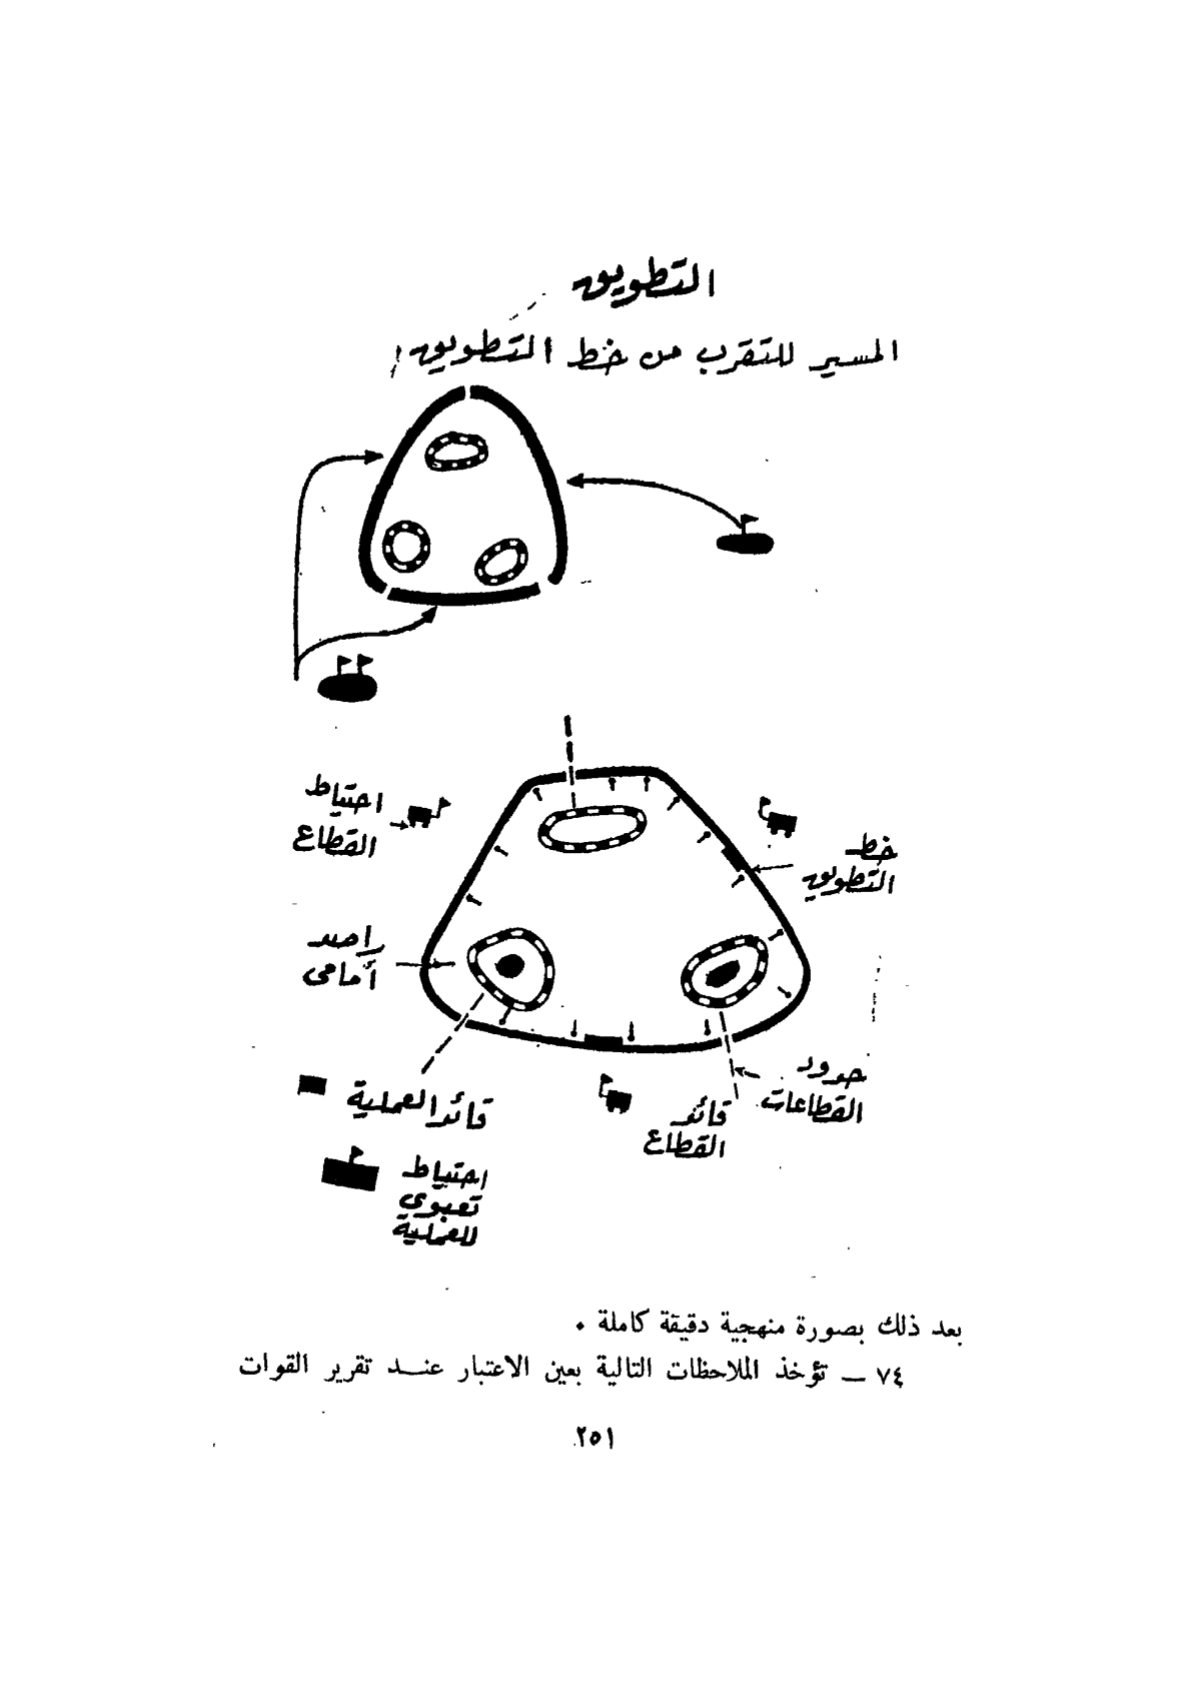 التطويق
المسير للتقرب من خط التطويق
احتياط
القطاع
خط
التطويق
راصد
أمامي
حدود
القطاعات
قائد العملية
قائد
القطاع
احتياط
تعبوي
للعملية
بعد ذلك بصورة منهجية دقيقة كاملة ٠
٧٤ ــ تؤخذ الملاحظات التالية بعين الاعتبار عنـــد تقرير القوات
٢٥١